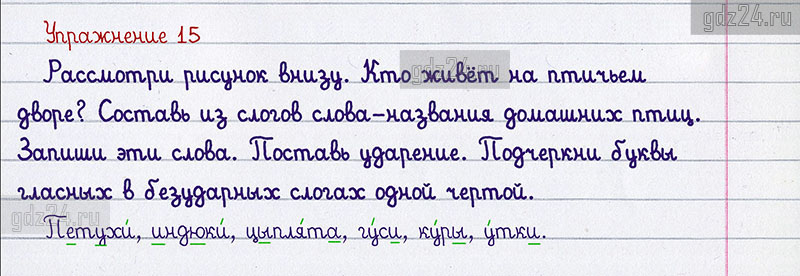 gdz24.ru
Упражнение 15
Рассмотри рисунок внизу. Кто живёт на птичьем
gdz24.ru
дворе? Составь из слогов слова-названия домашних птиц.
Запиши эти слова. Поставь ударение. Подчеркни буквы
гласных в безударных слогах одной чертой.
gdz24.ru
Петухи́, индюки́, цыпля́та, гу́си, ку́ры, у́тки.